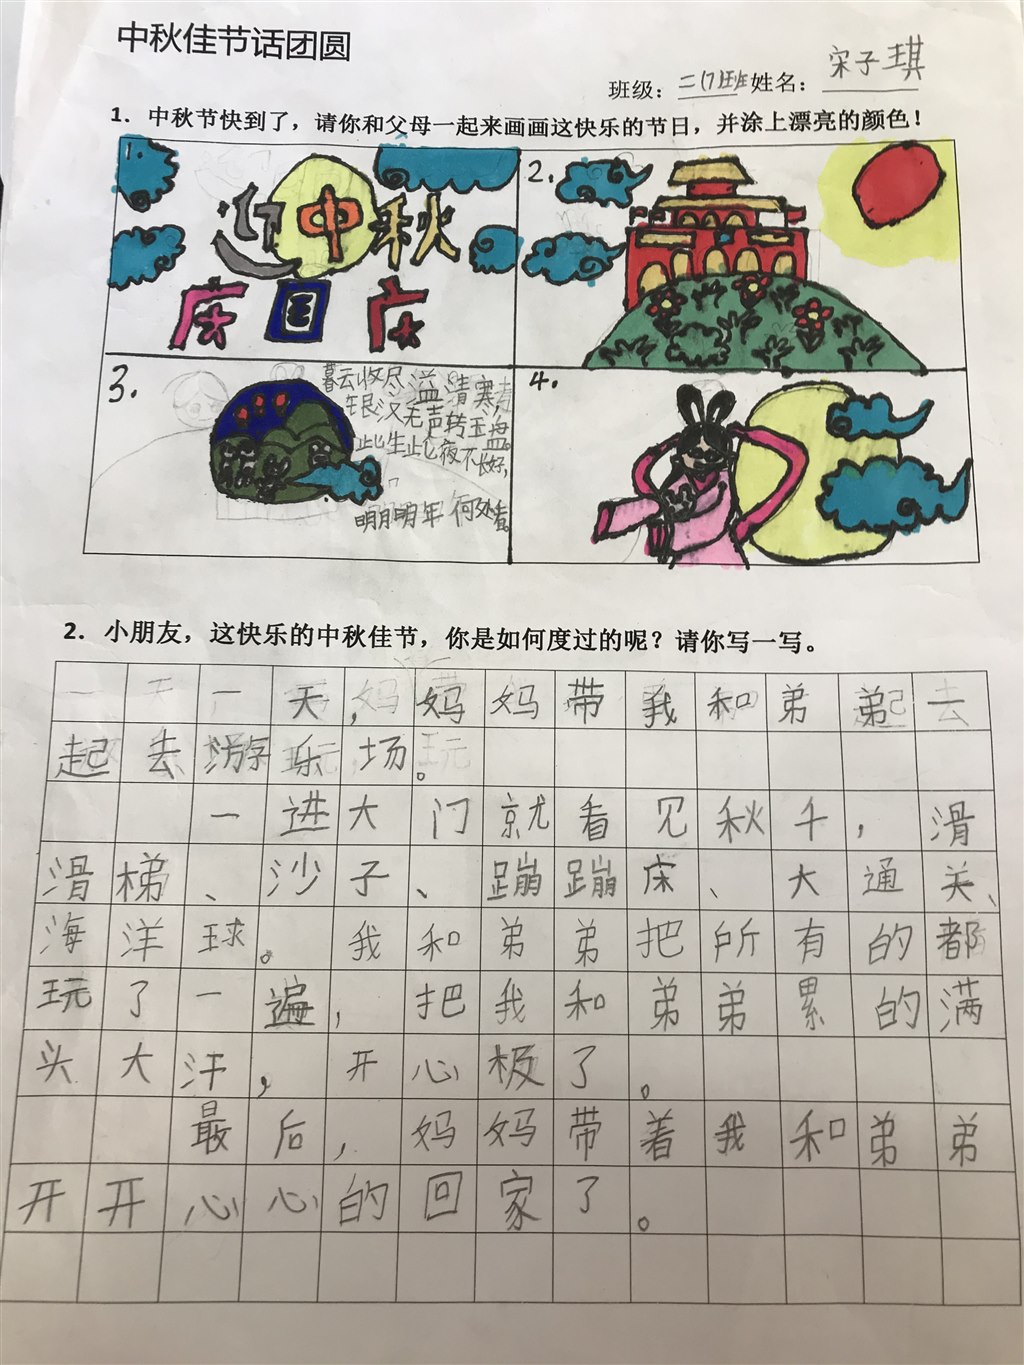 中秋佳节话团圆
班级：二(7)班 姓名：宋子琪
1. 中秋节快到了，请你和父母一起来画画这快乐的节日，并涂上漂亮的颜色！
1
迎中秋
庆国庆
2.
3.
暮云收尽溢清寒，
银汉无声转玉盘。
此生此夜不长好，
明月明年何处看。
4.
2. 小朋友，这快乐的中秋佳节，你是如何度过的呢？请你写一写。
一天，妈妈带我和弟弟
起去游乐场。
一进大门就看见秋千，滑
滑梯、沙子、蹦蹦床、大通关、
海洋球。我和弟弟把所有的都
玩了一遍，把我和弟弟累的满
头大汗，开心极了。
最后，妈妈带着我和弟弟
开开心心的回家了。